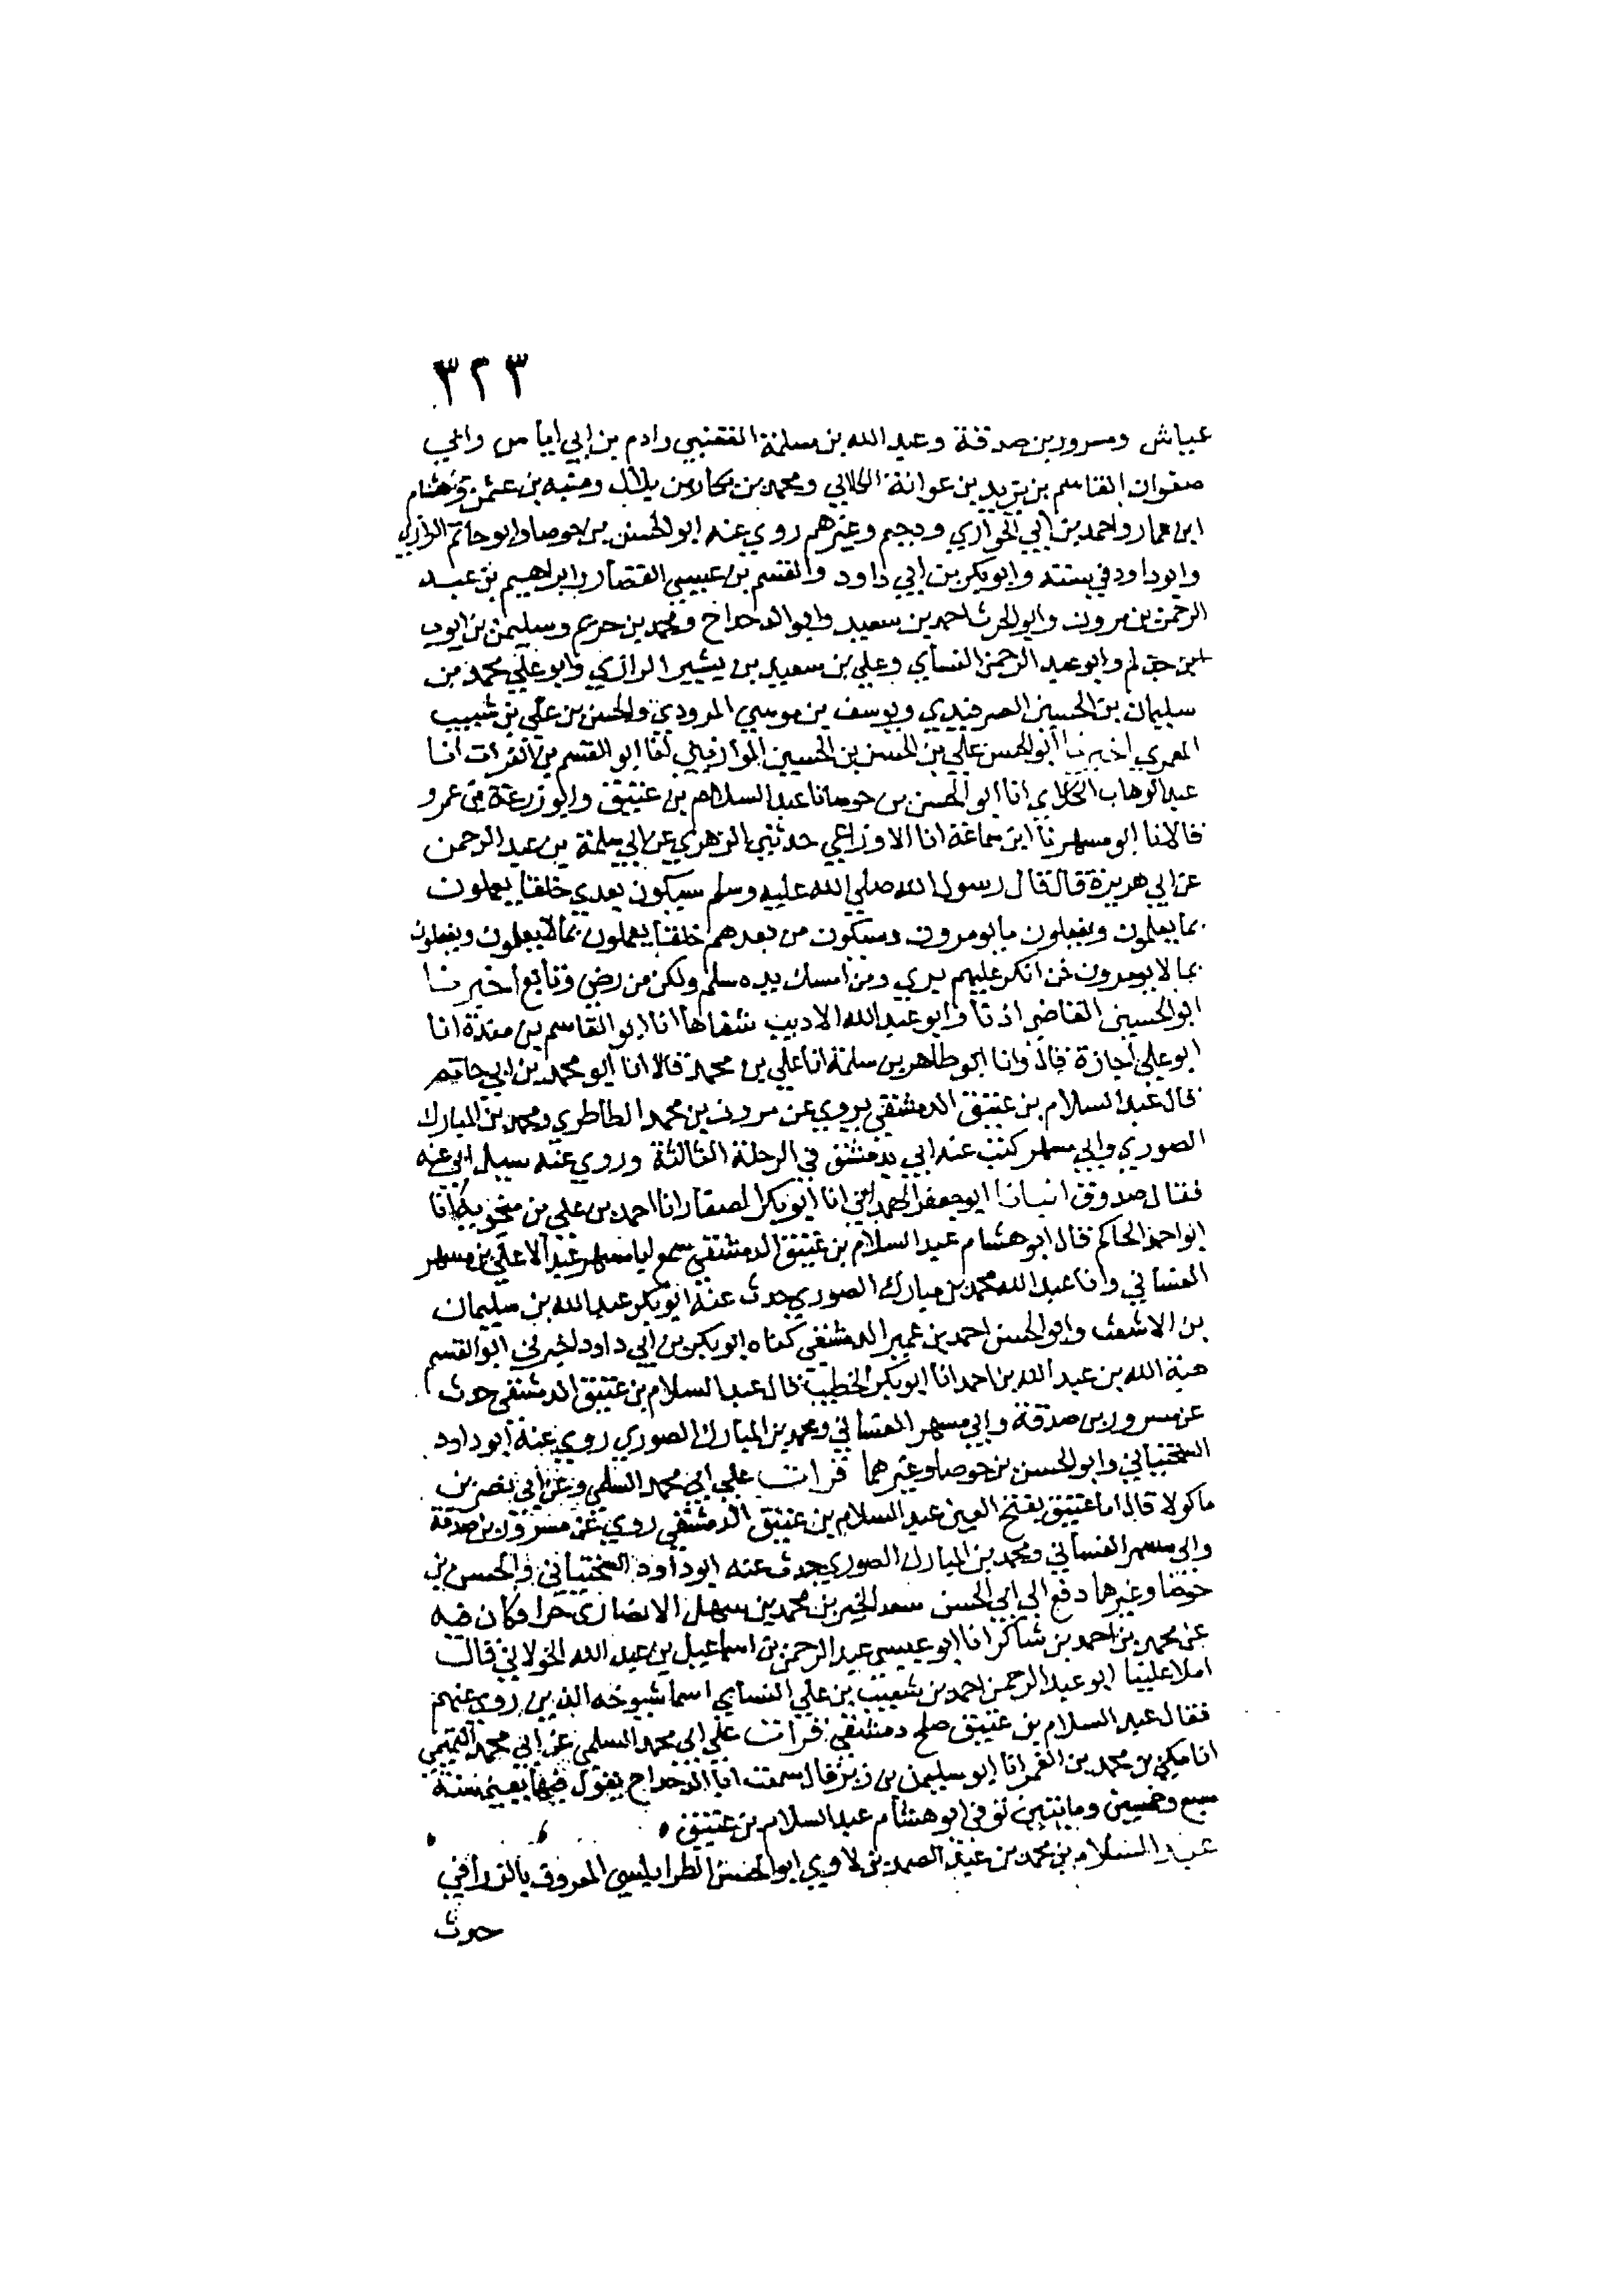 ٣٢٣
عياش ومسرور بن صدقة وعبد الله بن مسلمة القعنبي وادم بن ابي اياس وابي
صفوان القاسم بن يزيد بن عوانة الكلابي ومحمد بن بكار بن بلال ومنبه بن عثمن وهشام
ابن عمار واحمد بن ابي الحواري ودحيم وغيرهم روي عنه ابو الحسن بن جوصا وابو حاتم الرازي
وابو داود في سننه وابو بكر بن ابي داود والقسم بن عيسي القصار وابراهيم بن عبد
الرحمن بن مرون وابو الحرث احمد بن سعيد وابو الدحداح ومحمد بن خريم وسليمن بن ايوب
ابن حذلم وابو عبد الرحمن النسأي وعلي بن سعيد بن بشير الرازي وابو علي محمد بن
سليمان بن الحسين الصرفندي ويوسف بن موسي المرودي والحسن بن علي بن شبيب
المعمري اخبرنا ابو الحسن علي بن الحسن بن الحسين الموازيني انا ابو القسم بن الفرات انا
عبد الوهاب الكلابي انا ابو الحسن بن جوصا نا عبد السلام بن عتيق وابو زرعة بن عمرو
قالا نا ابو مسهر نا ابن سماعة انا الاوزاعي حدثني الزهري عن ابي سلمة بن عبد الرحمن
عن ابي هريرة قال قال رسول الله صلي الله عليه وسلم سيكون بعدي خلفا يعملون
بما يعلمون ويفعلون ما يومرون وسيكون من بعدهم خلفا يعملون بما لا يعلمون ويفعلون
بما لا يومرون فمن انكر عليهم بري ومن امسك يده سلم ولكن من رضي وتابع اخبرنا
ابو الحسين القاضي اذنا وابو عبد الله الاديب شفاها انا ابو القاسم بن مندة انا
ابو علي اجازة قال وانا ابو طاهر بن سلمة انا علي بن محمد قالا انا ابو محمد بن ابي حاتم
قال عبد السلام بن عتيق الدمشقي يروي عن مرون بن محمد الطاطري ومحمد بن المبارك
الصوري وابي مسهر كتب عنه ابي بدمشق في الرحلة الثالثة وروي عنه سيل ابي عنه
فقال صدوق انبانا ابو جعفر الهمداني انا ابو بكر الصفار انا احمد بن علي بن منجويه انا
ابو احمد الحاكم قال ابو هشام عبد السلام بن عتيق الدمشقي سمع ابا مسهر عبد الاعلي بن مسهر
الغساني وانا عبد الله محمد بن مبارك الصوري حدث عنه ابو بكر عبد الله بن سليمان
بن الاشعث وابو الحسن احمد بن عمير الدمشقي كناه ابو بكر بن ابي داود اخبرني ابو القسم
هبة الله بن عبد الله بن احمد انا ابو بكر الخطيب قال عبد السلام بن عتيق الدمشقي حدث
عن مسرور بن صدقة وابي مسهر الغساني ومحمد بن المبارك الصوري روي عنه ابو داود
السختياني وابو الحسن بن جوصا وغيرهما قرات علي ابي محمد السلمي وعن ابي نصر بن
ماكولا قال اما عتيق بفتح العين عبد السلام بن عتيق الدمشقي روي عن مسرور بن صدقة
وابي مسهر الغساني ومحمد بن المبارك الصوري حدث عنه ابو داود السختياني والحسن بن
حوصا وغيرهما دفع الي ابي الحسن سعد الخير بن محمد بن سهل الانصاري جزا وكان فيه
عن محمد بن احمد بن شاكر انا ابو عيسي عبد الرحمن بن اسماعيل بن عبد الله الخولاني قالت
املا علينا ابو عبد الرحمن احمد بن شعيب بن علي النسأي اسما شيوخه الذين روي عنهم
فقال عبد السلام بن عتيق صلح دمشقي قرات علي ابي محمد السلمي عن ابي محمد التميمي
انا مكي بن محمد بن الغمر انا ابو سليمن بن زبر قال سمعت ابا الدحداح يقول فيها يعني سنة
سبع وخمسين ومايتين توفي ابو هشام عبد السلام بن عتيق
عبد السلام بن محمد بن عبد الصمد بن لاوي ابو الحسن الطرابلسي المعروف بالزرافي
حدث